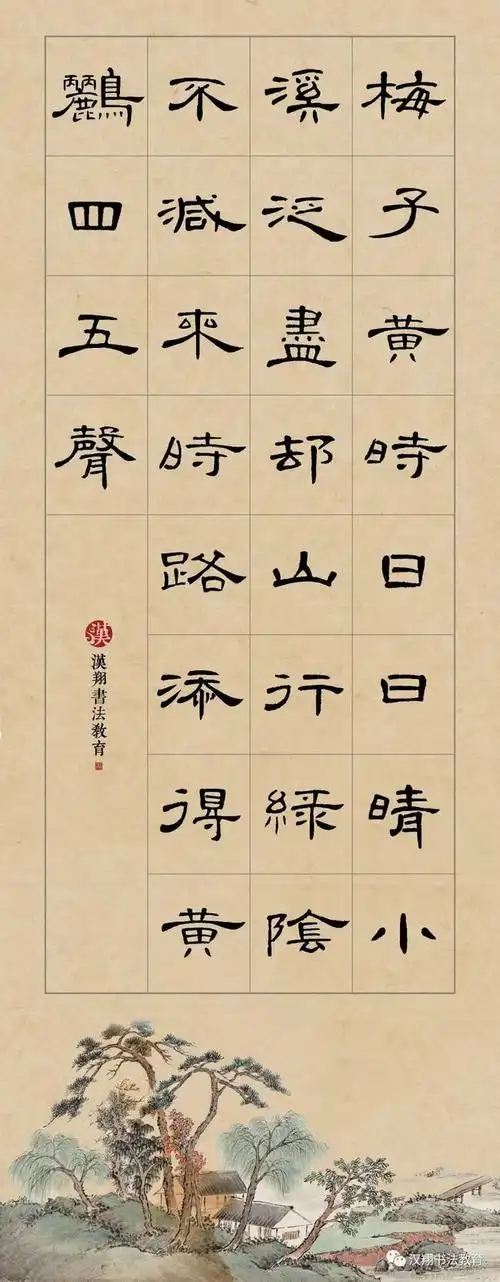 梅子黄時日日晴小
溪泛盡却山行綠陰
不減來時路添得黄
鸝四五聲
漢
漢翔書法教育
汉翔书法教育